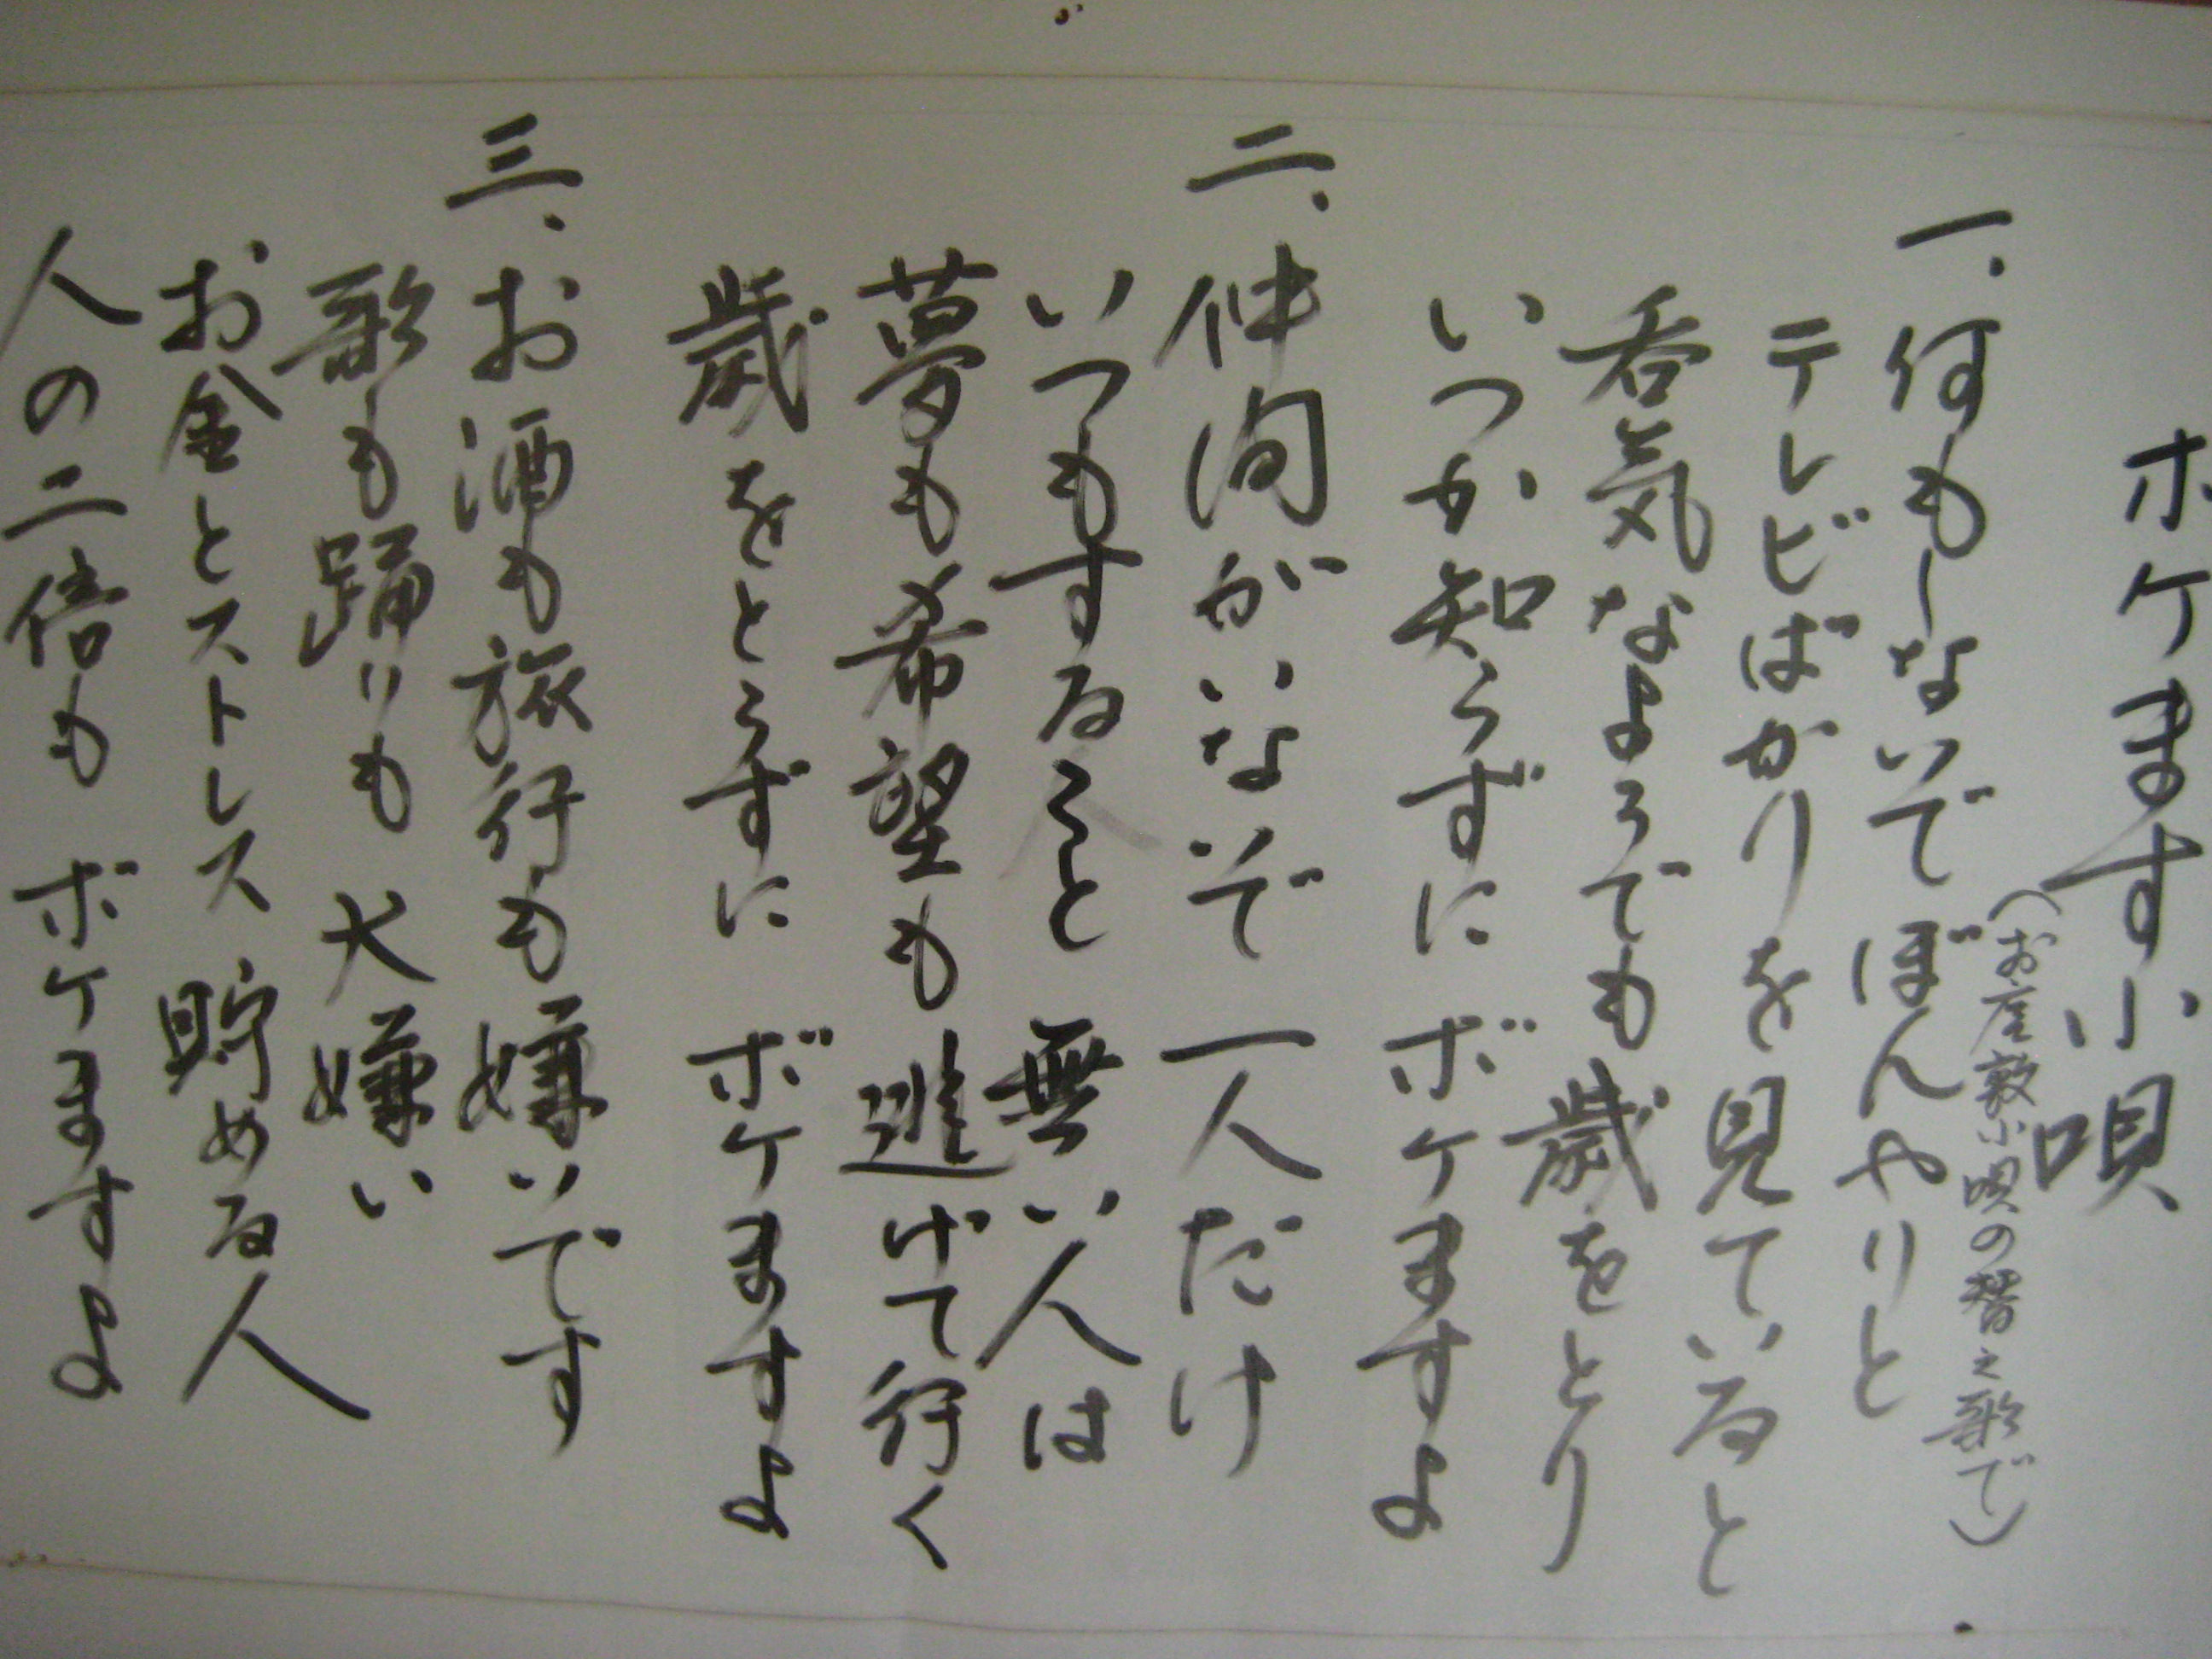 ボケます小唄
(お座敷小唄の替え歌で)
一、何もしないでぼんやりと
テレビばかりを見ていると
呑気なようでも歳をとり
いつか知らずに ボケますよ
二、仲間がいないで 一人だけ
いつもすること 無い人は
夢も希望も逃げて行く
歳をとらずに ボケますよ
三、お酒も旅行も嫌いです
歌も踊りも 大嫌い
お金とストレス 貯める人
人の二倍も ボケますよ